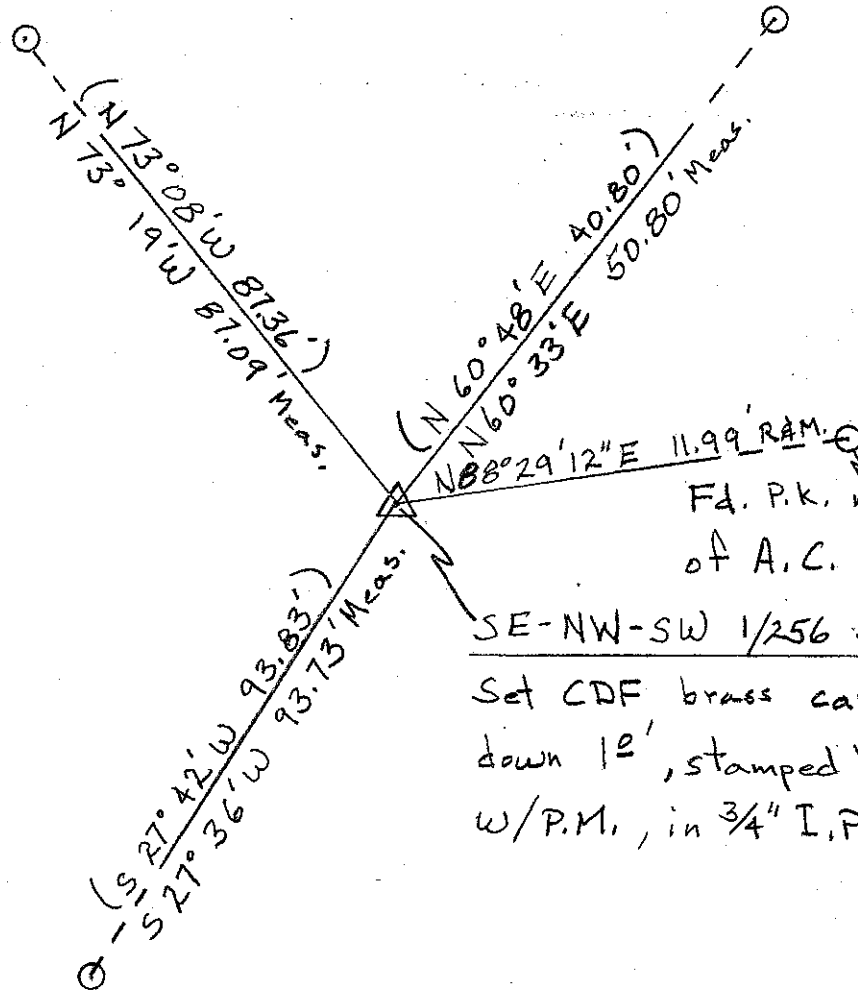 (N 73°08'W 87.36')
N 73° 19'W 87.09' Meas.
(N 60° 48'E 40.80')
N 60° 33'E 50.80' Meas.
N88°29'12"E 11.99' R&M.
Fd. P.K.
of A.C.
SE-NW-SW 1/256
Set CDF brass
down 1º', stamped
W/P.M., in 3/4" I.P
(S 27° 42'W 93.83')
S 27° 36'W 93.73' Meas.